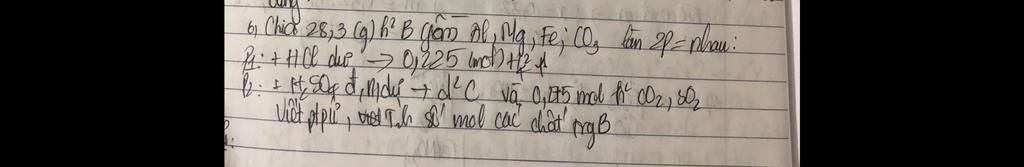 6) Chia 28,3 (g) h² B gồm Al, Mg, Fe, CO₃ làm 2P = nhau:
P₁: + HCl dư → 0,225 (mol) H₂ ↑
P₂: + H₂SO₄ đ, n dư → d² C và 0,175 mol h² CO₂, SO₂
Viết ptpư, Tính số mol các chất trg B